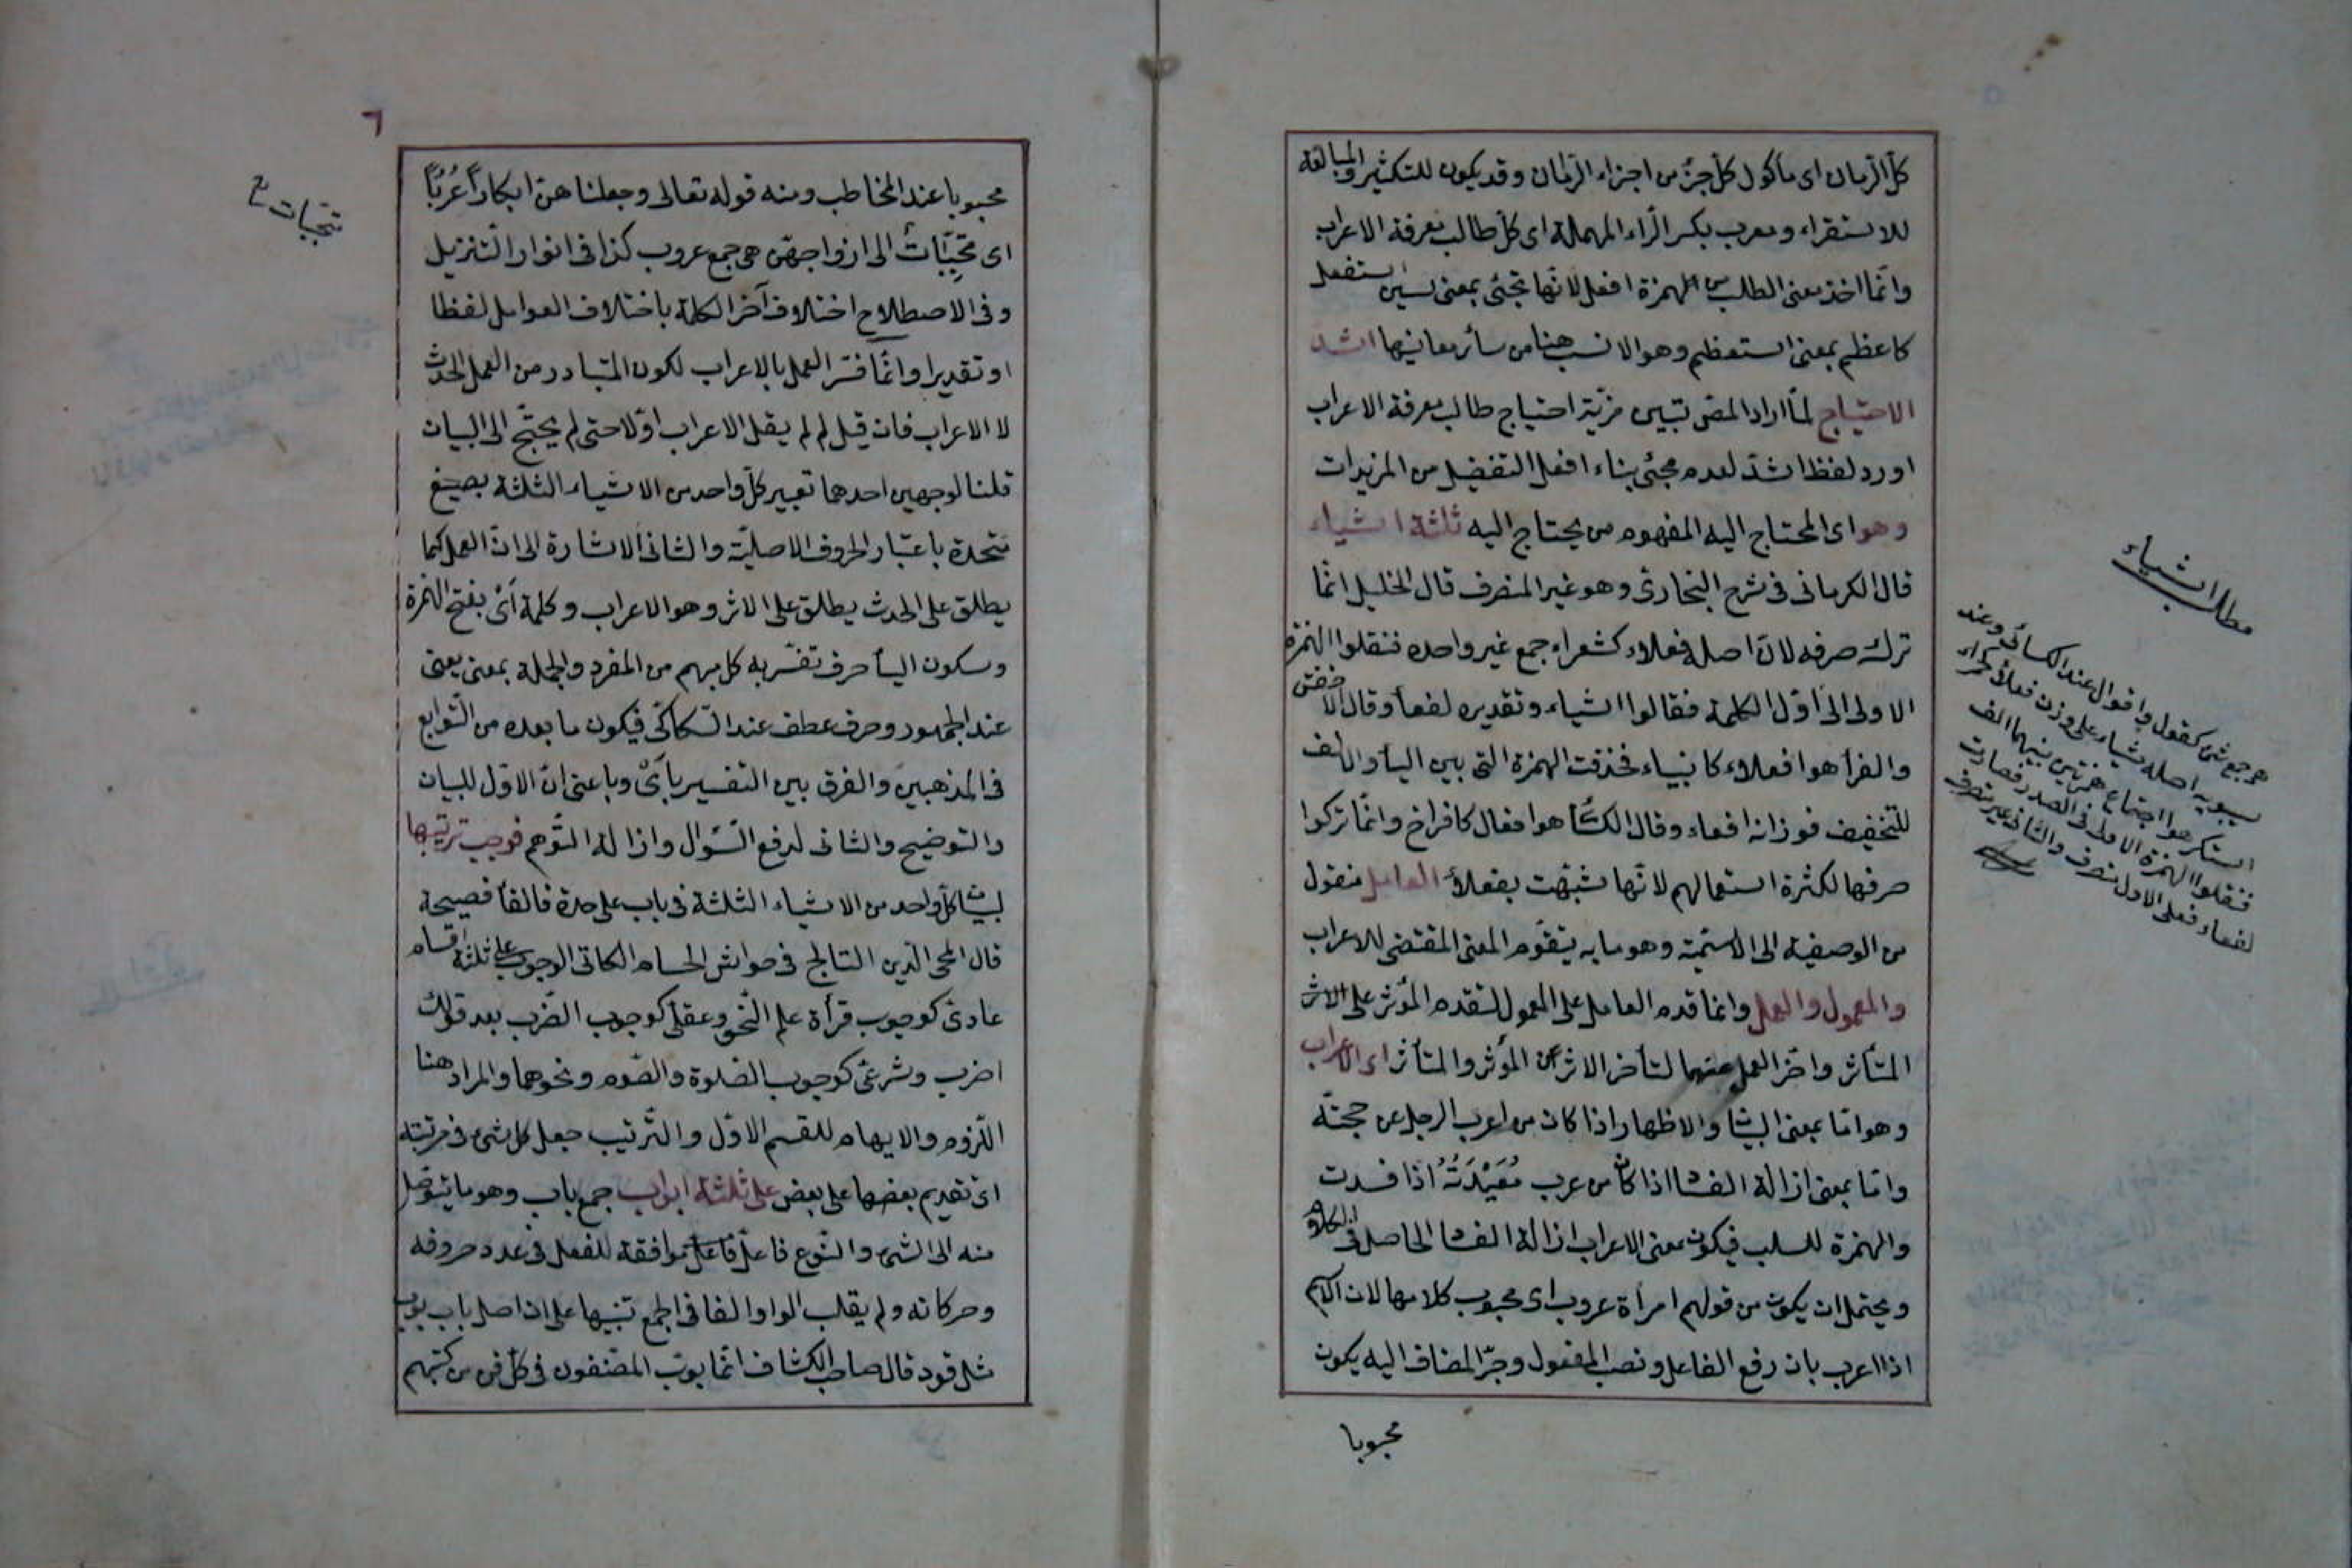 كل الزمان اى مأكول كل جزء من اجزاء الزمان وقد يكون للتكثير والمبالغة
للاستقراء ومعرب بكسر الراء المهملة اى كل طالب معرفة الاعراب
وانما اخذ معنى الطلب من الهمزة افعل لانها تجئ بمعنى سين استفعل
كاعظم بمعنى استعظم وهو الانسب هنا من سائر معانيها اشد
الاحتياج لما اراد المص تبيين مزية احتياج طالب معرفة الاعراب
اورد لفظ اشد لعدم مجئ بناء افعل التفضيل من المزيدات
وهو اى المحتاج اليه المفهوم من يحتاج اليه ثلثة اشياء
قال الكرمانى فى شرح البخارى وهو غير المنصرف قال الخليل انما
ترك صرفه لان اصله فعلاء كشعراء جمع غير واحده فنقلوا الهمزة
الاولى الى اول الكلمة فقالوا اشياء وتقديره لفعأ وقال الاخفش
والفرأ هو افعلاء كانبياء فحذفت الهمزة التى بين اليأ والالف
للتخفيف فوزانه افعاء وقال الكسأ هو افعال كافراخ وانما تركوا
صرفها لكثرة استعمالهم لانها شبهت بفعلأ العامل منقول
من الوصفية الى الاسمية وهو ما به يتقوم المعنى المقتضى للاعراب
والمعمول والعمل وانما قدم العامل على المعمول لتقدم المؤثر على الاثر
المتأثر واخر العمل عنهما لتأخر الاثر عن المؤثر والمتأثر اى الاعراب
وهو اما بمعنى البيا والاظهار اذا كان من اعرب الرجل عن حجته
واما بمعنى ازالة الفسا اذا كان من عرب مُعَيْدَتُهُ اذا فسدت
والهمزة للسلب فيكون معنى الاعراب ازالة الفسا الحاصل فى الكلام
ويحتمل ان يكون من قولهم امرأة عروب اى محبوب كلامها لان الكلام
اذا اعرب بان رفع الفاعل ونصب المفعول وجر المضاف اليه يكون
محبوبا
مطلب اشياء
هو جمع شئ كقول واقوال عند الكسائى وعند
سيبويه اصله شياء على وزن فعلأ كحمراء
استكرهوا اجتماع همزتين بينهما الف
فنقلوا الهمزة الاولى فى الصدر فصارت
لفعاء فعلى الاول منصرف والثانى غير منصرف
٦
محبوبا عند المخاطب ومنه قوله تعالى وجعلنا هن ابكاراً عُرُباً
اى محببات الى ازواجهن هى جمع عروب كذا فى انوار التنزيل
وفى الاصطلاح اختلاف آخر الكلمة باختلاف العوامل لفظا
او تقديرا وانما فسر العمل بالاعراب لكون المتبادر من العمل الحدث
لا الاعراب فان قيل لم لم يقل الاعراب اولا حتى لم يحتج الى البيان
قلنا لوجهين احدهما تعبير كل واحد من الاشياء الثلثة بصيغ
متحدة باعتبار الحروف الاصلية والثانى الاشارة الى ان العمل كما
يطلق على الحدث يطلق على الاثر وهو الاعراب وكلمة اى بفتح الهمزة
وسكون اليأ حرف تفسر به كل مبهم من المفرد والجملة بمعنى يعنى
عند الجمهور وحرف عطف عند السكاكى فيكون ما بعده من التوابع
فى المذهبين والفرق بين التفسير باى وباعنى ان الاول للبيان
والتوضيح والثانى لدفع السؤال وازالة التوهم فوجب ترتيبها
لبيان كل واحد من الاشياء الثلثة فى باب على حدة فالفأ فصيحة
قال المحى الدين التالجى فى حواش الحسام الكاتى الوجوب على ثلثة اقسام
عادى كوجوب قرأة علم النحو وعقلى كوجوب الضرب بعد قولك
اضرب وشرعى كوجوب الصلوة والصوم ونحوهما والمراد هنا
اللزوم والايهام للقسم الاول والترتيب جعل كل شئ فى مرتبته
اى تقديم بعضها على بعض على ثلثة ابواب جمع باب وهو ما يتوصل
منه الى الشئ والنوع فاعل فاعل موافقة للفعل فى عدد حروفه
وحركاته ولم يقلب الواو الفا فى الجمع تنبيها على ان اصل باب بوب
مثل قود قال صاحب الكشاف انما بوب المصنفون فى كل فن من كتبهم